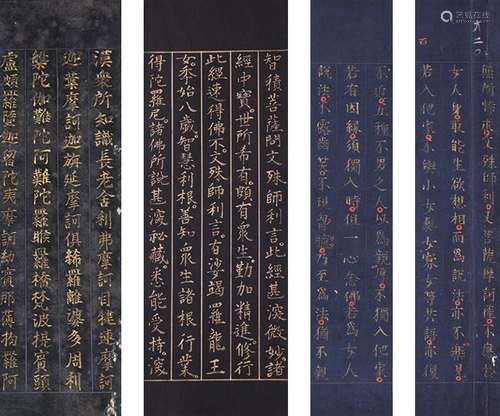 漢眾所知識長老舍利弗摩訶目犍連摩訶
迦葉摩訶迦旃延摩訶俱絺羅離婆多周利
槃陀伽難陀阿難陀羅睺羅憍梵波提賓頭
盧頗羅墮迦留陀夷摩訶劫賓那薄拘羅阿
智積菩薩問文殊師利言此經甚深微妙諸
經中寶世所希有頗有眾生勤加精進修行
此經速得佛不文殊師利言有娑竭羅龍王
女年始八歲智慧利根善知眾生諸根行業
得陀羅尼諸佛所說甚深祕藏悉能受持深
不近五種不男之人以為親厚不獨入他家
若有因緣須獨入時但一心念佛若為女人
說法不露齒笑不現胸臆乃至為法猶不親
殊師利又菩薩摩訶薩不應於
女人身取能生欲想相而為說法亦不樂見
若入他家不與小女處女寡女等共語亦復
四
艺狐在线